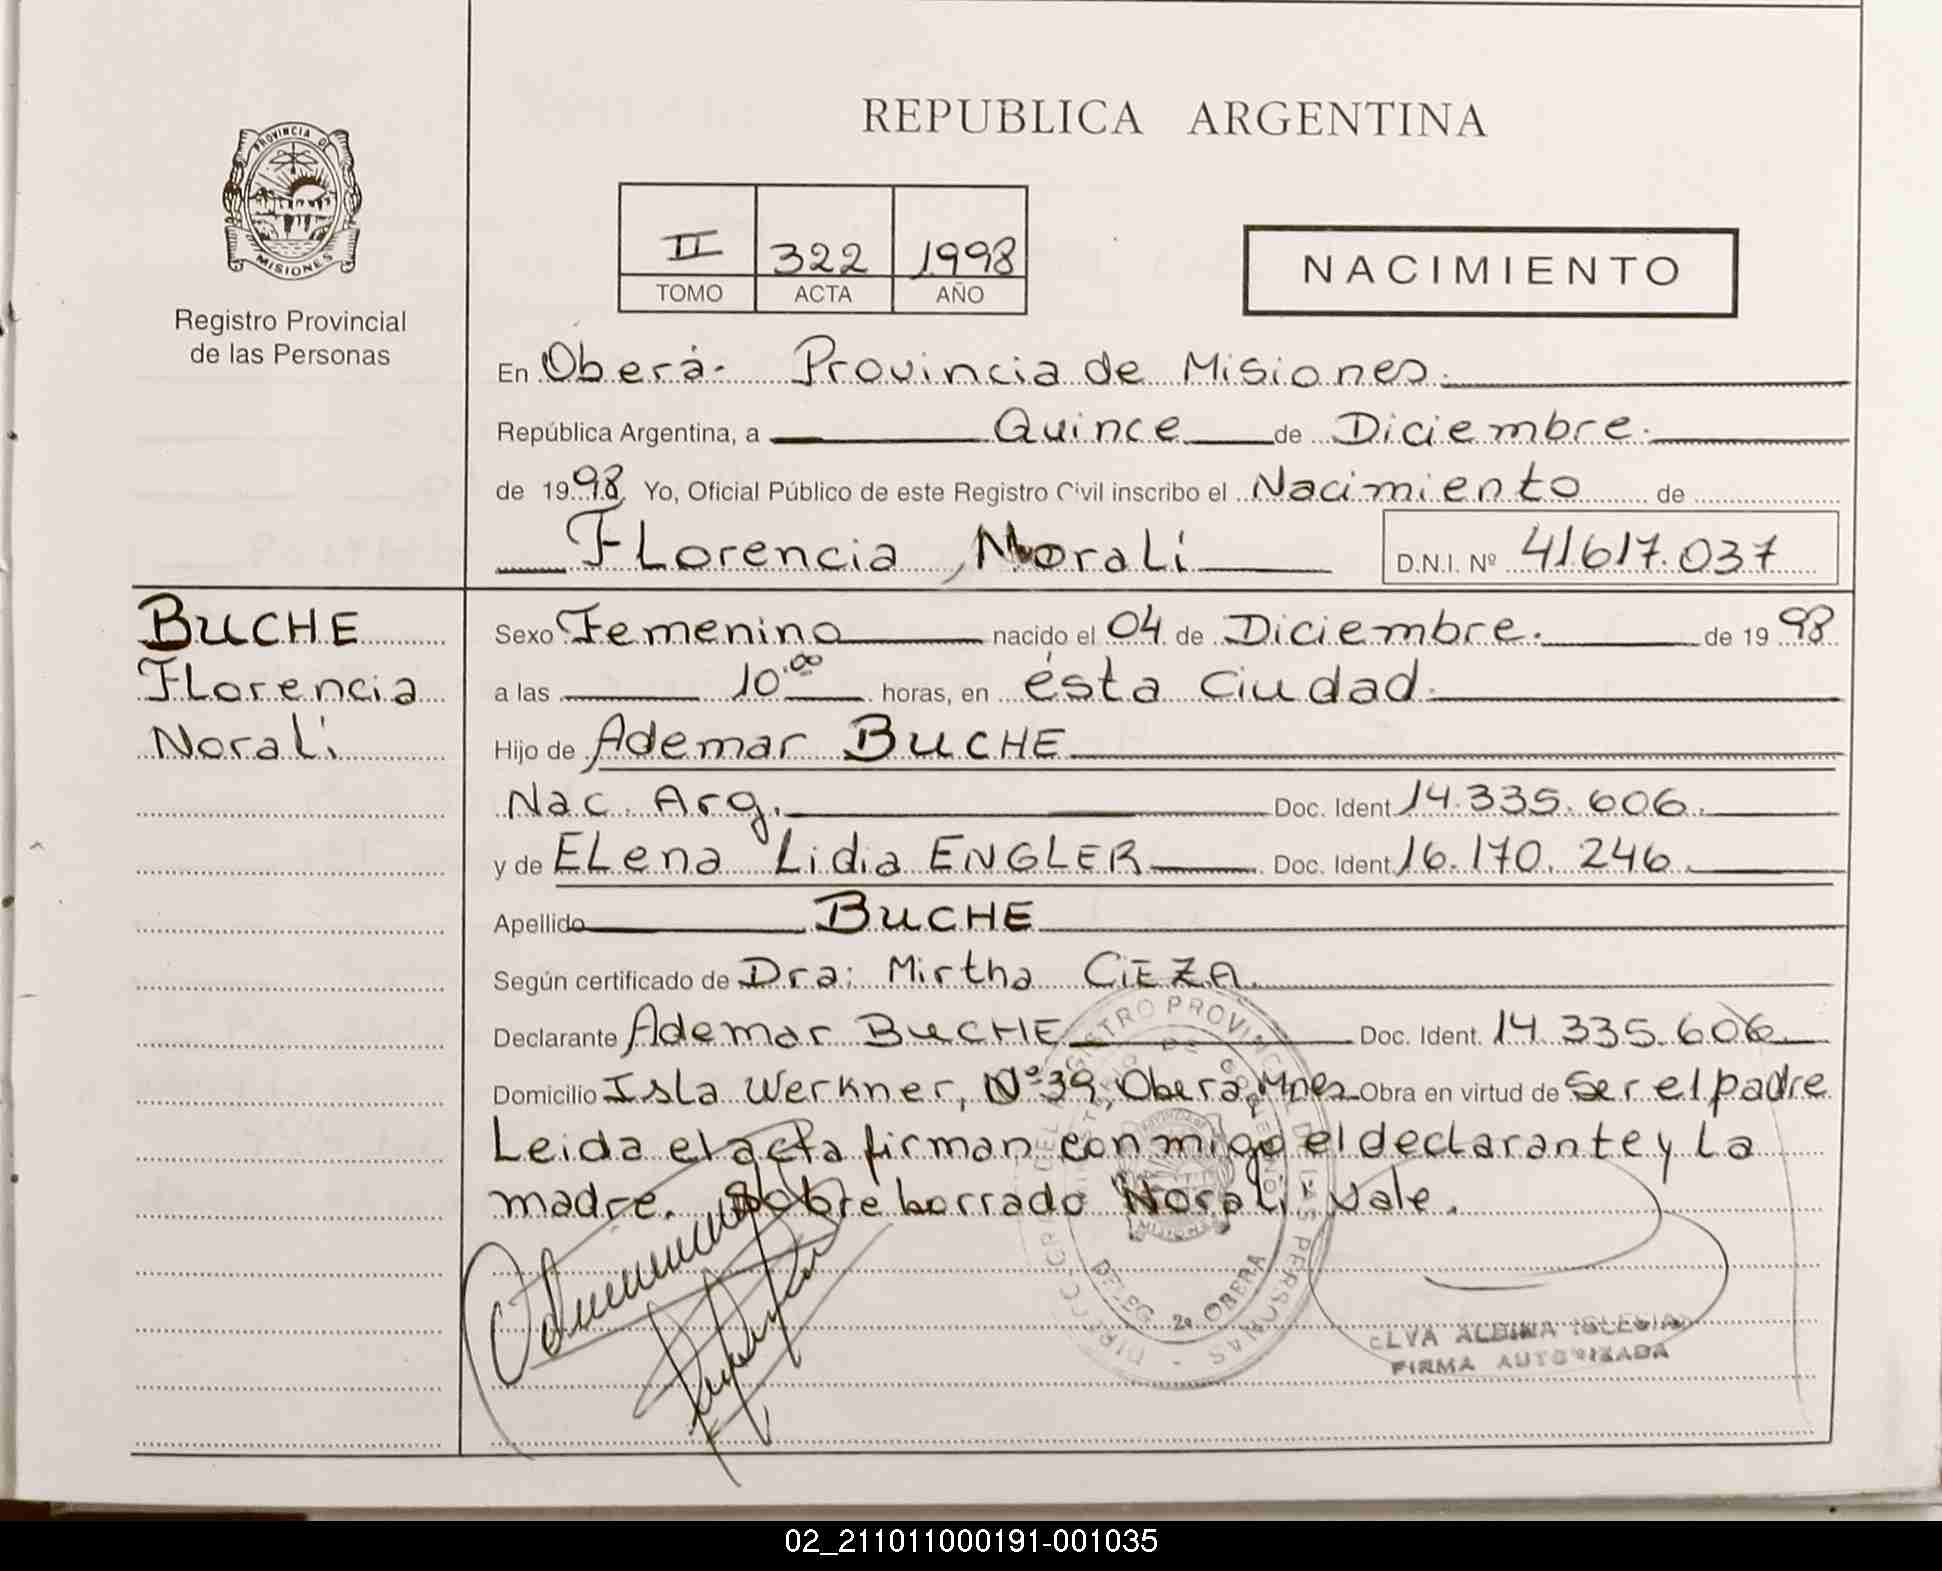 REPUBLICA ARGENTINA
PROVINCIA DE
MISIONES
Registro Provincial
de las Personas
II 322 1998
TOMO ACTA AÑO
NACIMIENTO
En Oberá. Provincia de Misiones.
República Argentina, a Quince de Diciembre.
de 1998 Yo, Oficial Público de este Registro Civil inscribo el Nacimiento de
Florencia, Norali D.N.I. Nº 41.617.037
BUCHE
Florencia
Norali
Sexo Femenino nacido el 04 de Diciembre. de 1998
a las 10.00 horas, en ésta Ciudad.
Hijo de Ademar BUCHE
Nac. Arg. Doc. Ident 14.335.606.
y de ELena Lidia ENGLER Doc. Ident 16.170.246.
Apellido BUCHE
Según certificado de Dra: Mirtha CIEZA.
Declarante Ademar BUCHE Doc. Ident. 14.335.606
Domicilio Isla Werkner, Nº 39, Oberá, Mnes Obra en virtud de Ser el padre
Leida el acta firman conmigo el declarante y La
madre. Sobre borrado "Norali" Vale.
DELEG. 2a OBERA
ELVA ALBINA IGLESIAS
FIRMA AUTORIZADA
02_211011000191-001035